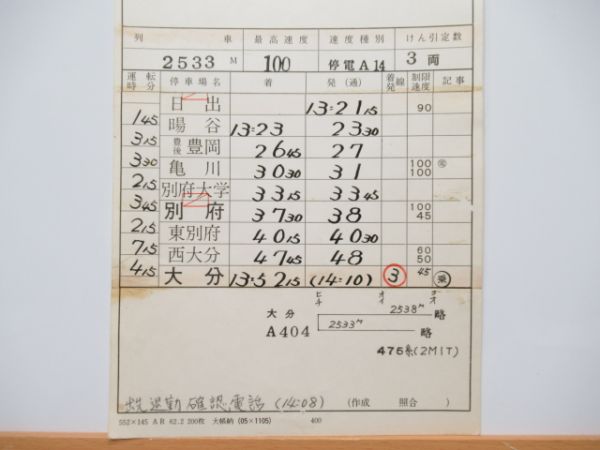 列 車 最高速度 速度種別 けん引定数
2533M 100 停電A14 3両
運転時分 停車場名 着 発(通) 着発線 制限速度 記事
日出 13:21 15 90
1 45
暘谷 13:23 23 30
3 15
豊後豊岡 26 45 27
3 30
亀川 30 30 31 100 100
2 15
別府大学 33 15 33 45
3 45
別府 37 30 38 100 45
2 15
東別府 40 15 40 30
7 15
西大分 47 45 48 60 50
4 15
大分 13:52 15 (14:10) ③ 45 乗
ヒチ オイ
大分 2538M 略
A404 2533M 略
475系(2M1T)
退勤確認電話 (14:08) (作成 照合 )
552×145 AR 62.2 200枚 大帳納 (05×1105) 400